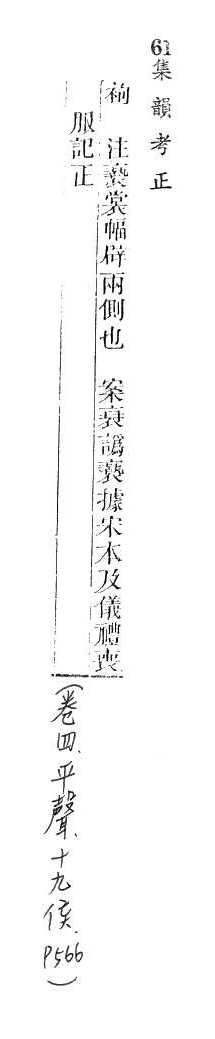 61集韻考正
袧 注褻裳幅辟兩側也 案衰譌褻據宋本及儀禮喪
服記正
(卷四.平聲.十九侯.P566)